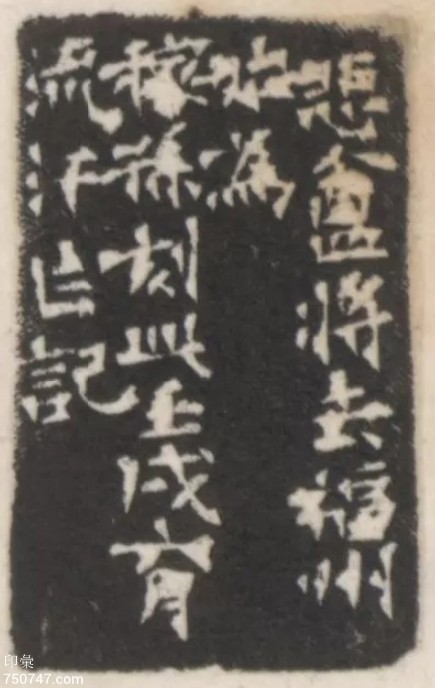 悲盦將去福州
始為
稼孫刻此壬戌六月
流汗記
印彙
750747.com